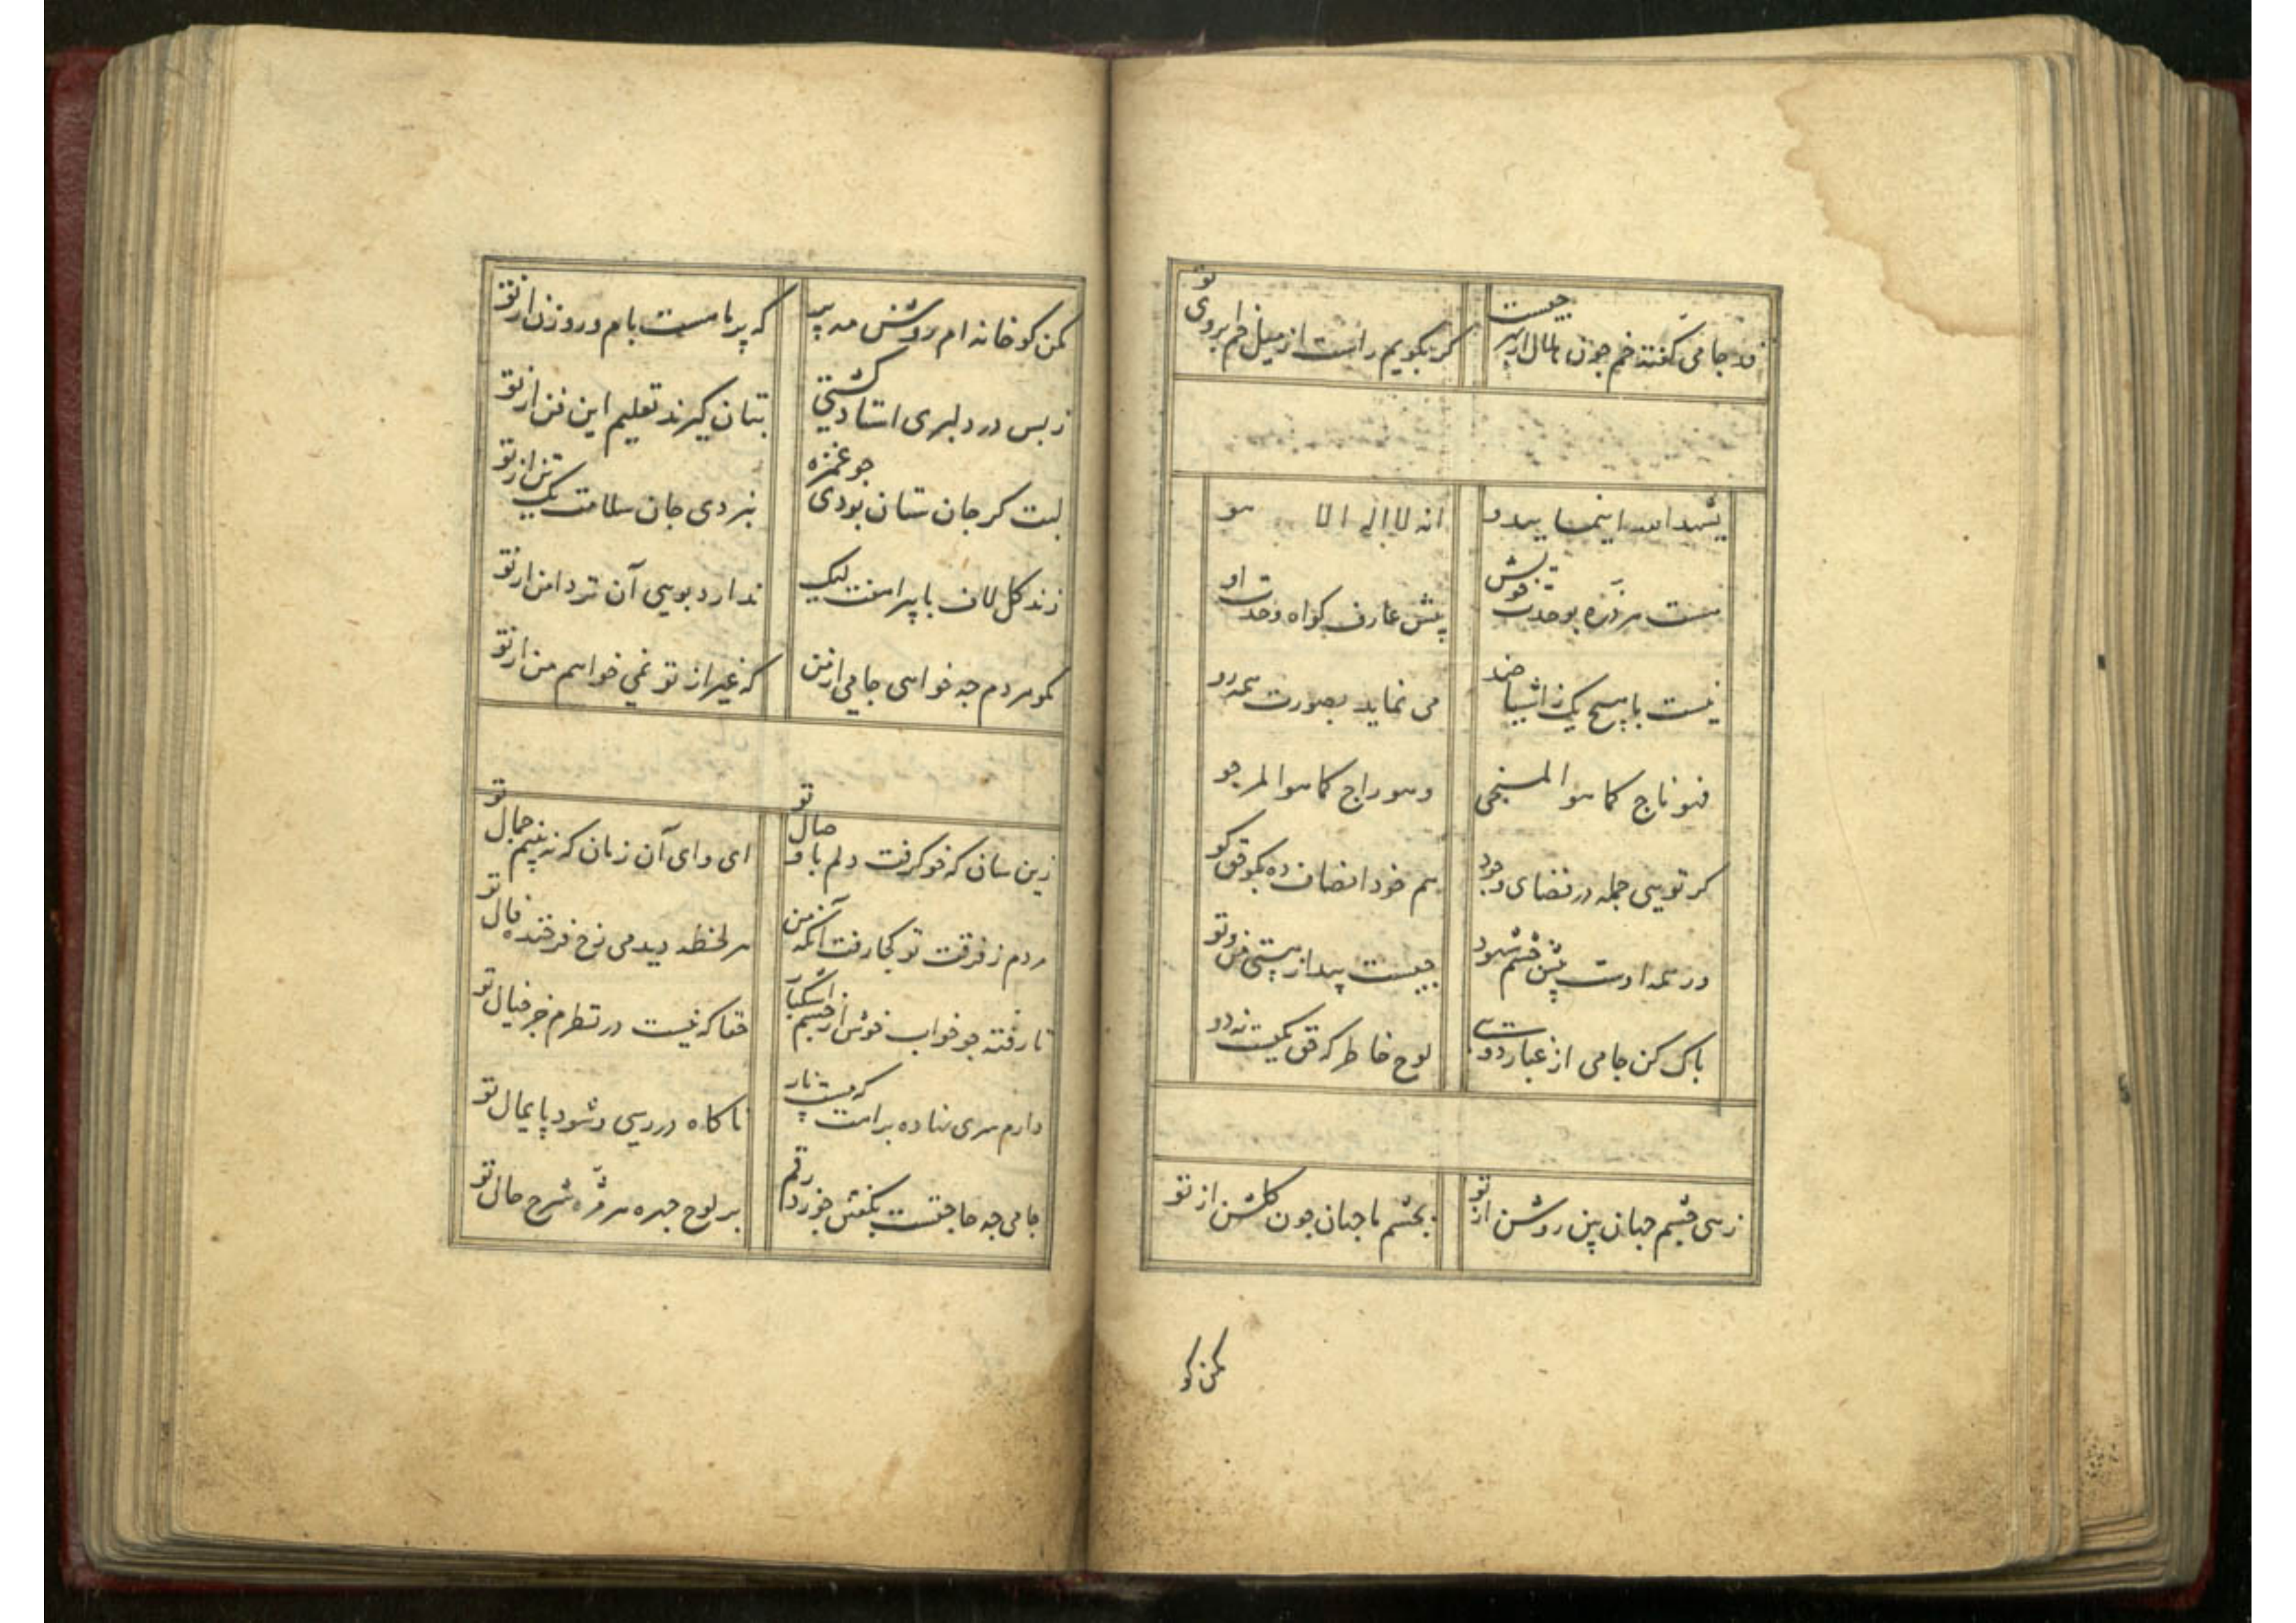 قد جامی گفتند خم چون هلال از بهر چیست
کر بگویم راست از میل خم ابروی تو
یشهد الله اینما یبدو
انه لا اله الا هو
هست هر ذره بوحدت خویش
پیش عارف گواه وحدت او
نیست با هیچ یک ز اشیا ضد
می نماید بصورت همه رو
فهو ناج کما هو المنجی
وهو راج کما هو المرجو
کر تویی جمله در فضای وجود
هم خود انصاف ده بگو حق کو
در همه اوست پیش چشم شهود
چیست پندار هستی من و تو
پاک کن جامی از غبار دوی
لوح خاطر که حق یکیست نه دو
زهی چشم جهان بین روشن از تو
بچشم ما جهان چون گلشن از تو
مکن کو
مکن کو خانه ام روشن مه پیر
که پر ماهست بام و روزن از تو
ز بس در دلبری استاد گشتی
بتان گیرند تعلیم این فن از تو
لبت گر جان ستان بودی جو غمزه
نبردی جان سلامت یک تن از تو
زند کل لاف با پیراهنت لیک
ندارد بویی آن تر دامن از تو
مکو هر دم چه خواهی جامی از من
که غیر از تو نمی خواهم من از تو
زین سان که خو گرفت دلم با وصال تو
ای وای آن زمان که نبینم جمال تو
مردم ز فرقت تو کجا رفت آنکه من
هر لحظه دیدمی رخ فرخنده فال تو
تا رفته جو خواب خوش از چشم اشکبار
حقا که نیست در نظرم جز خیال تو
دارم سری نهاده براهت که مست ناز
ناکاه در رسی و شود پایمال تو
جامی چه حاجتست بگفتن جو زد رقم
بر لوح چهره هر مژه شرح حال تو